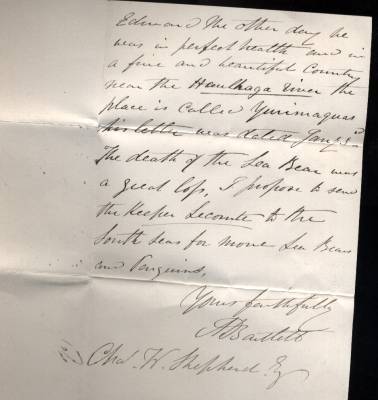 Edward the other day he
was in perfect health and in
a fine and beautiful Country
near the Huallaga river the
place is called Yurimaguas
his letter was dated Jany 5th
The death of the Sea Bear was
a great loss, I propose to send
the Keeper Lecomte to the
South Seas for more Sea Bears
and Penguins,
Yours faithfully
ABartlett
Chas. W. Shepherd Esq